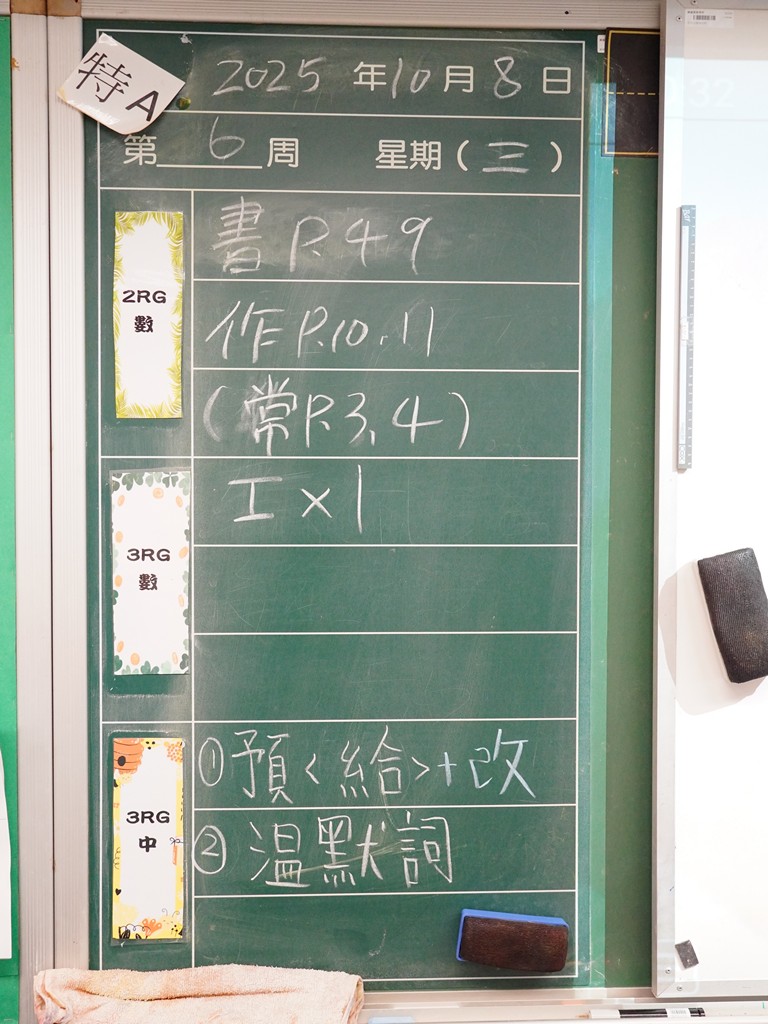 特A
2025年10月8日
第6周 星期(三)
2RG
數
書P.49
作P.10,11
(常P.3,4)
3RG
數
工×1
3RG
中
①預<給>+改
②溫默詞